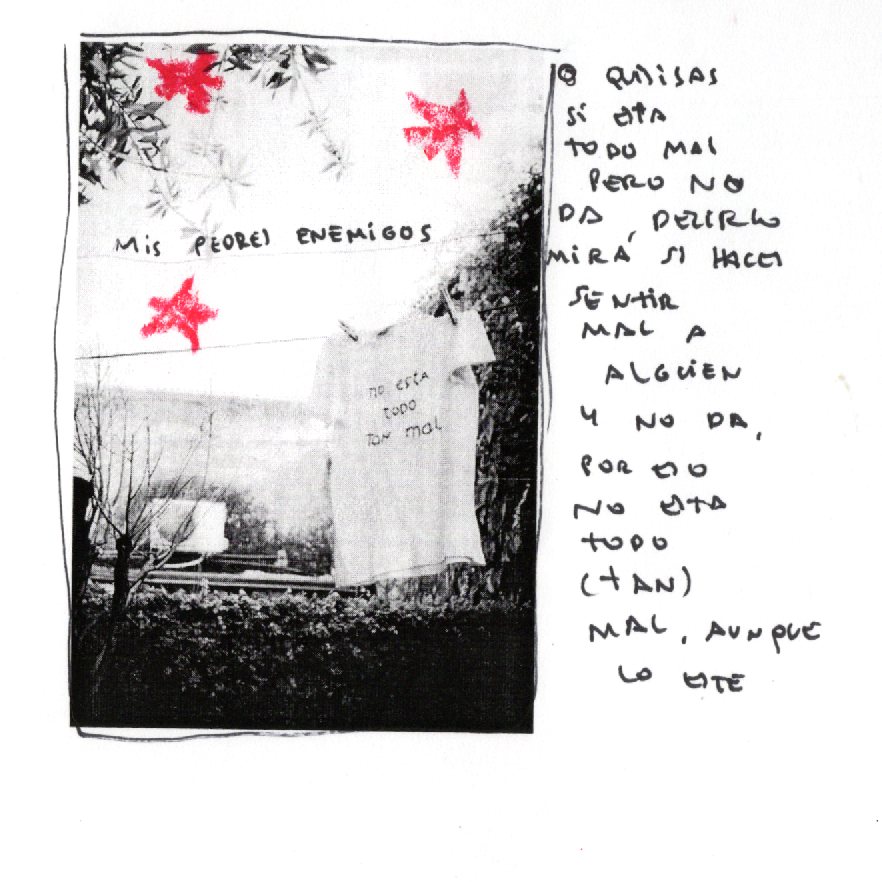 MIS PEORES ENEMIGOS
no esta
todo
tan mal
O QUISAS
SI ESTA
TODO MAL
PERO NO
DA, DECIRLO
MIRÁ SI HACES
SENTIR
MAL A
ALGUIEN
Y NO DA,
POR ESO
NO ESTA
TODO
(TAN)
MAL, AUNQUE
LO ESTE